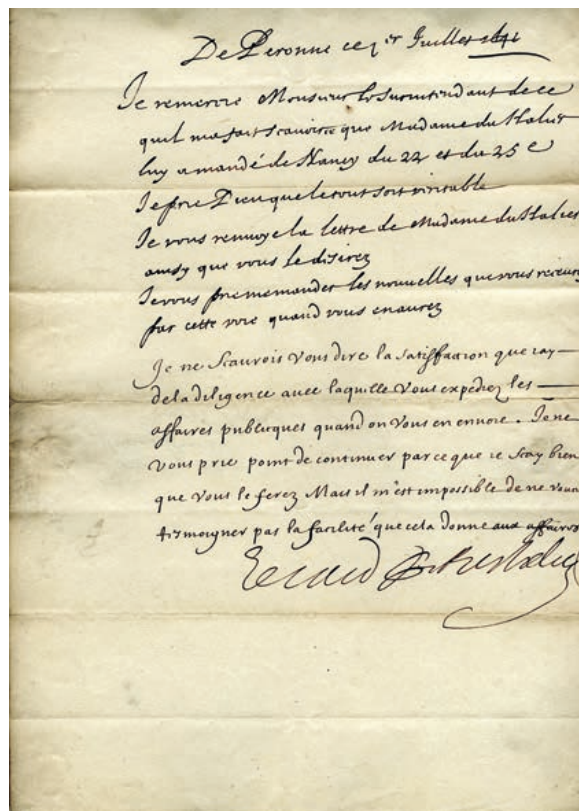 De Peronne ce 1er Juillet 1641
Je remercie Monsieur le surintendant de ce
quil ma fait scavoir ce que Madame du Halier
luy a mandé de Nancy du 22 et du 25e
Je prie Dieu que le tout soit veritable
Je vous renvoye la lettre de Madame du Halier
ainsy que vous le desirez
Je vous prie me mander les nouvelles que vous receurez
par cette voie quand vous en aurez
Je ne Scaurois vous dire la satisffaction que iay
de la diligence avec laquelle vous expediez les
affaires publicques quand on vous en envoie. Je ne
vous prie point de continuer parce que ie scay bien
que vous le ferez Mais il m'est impossible de ne vous
tesmoigner pas la facilité que cela donne aux affaires